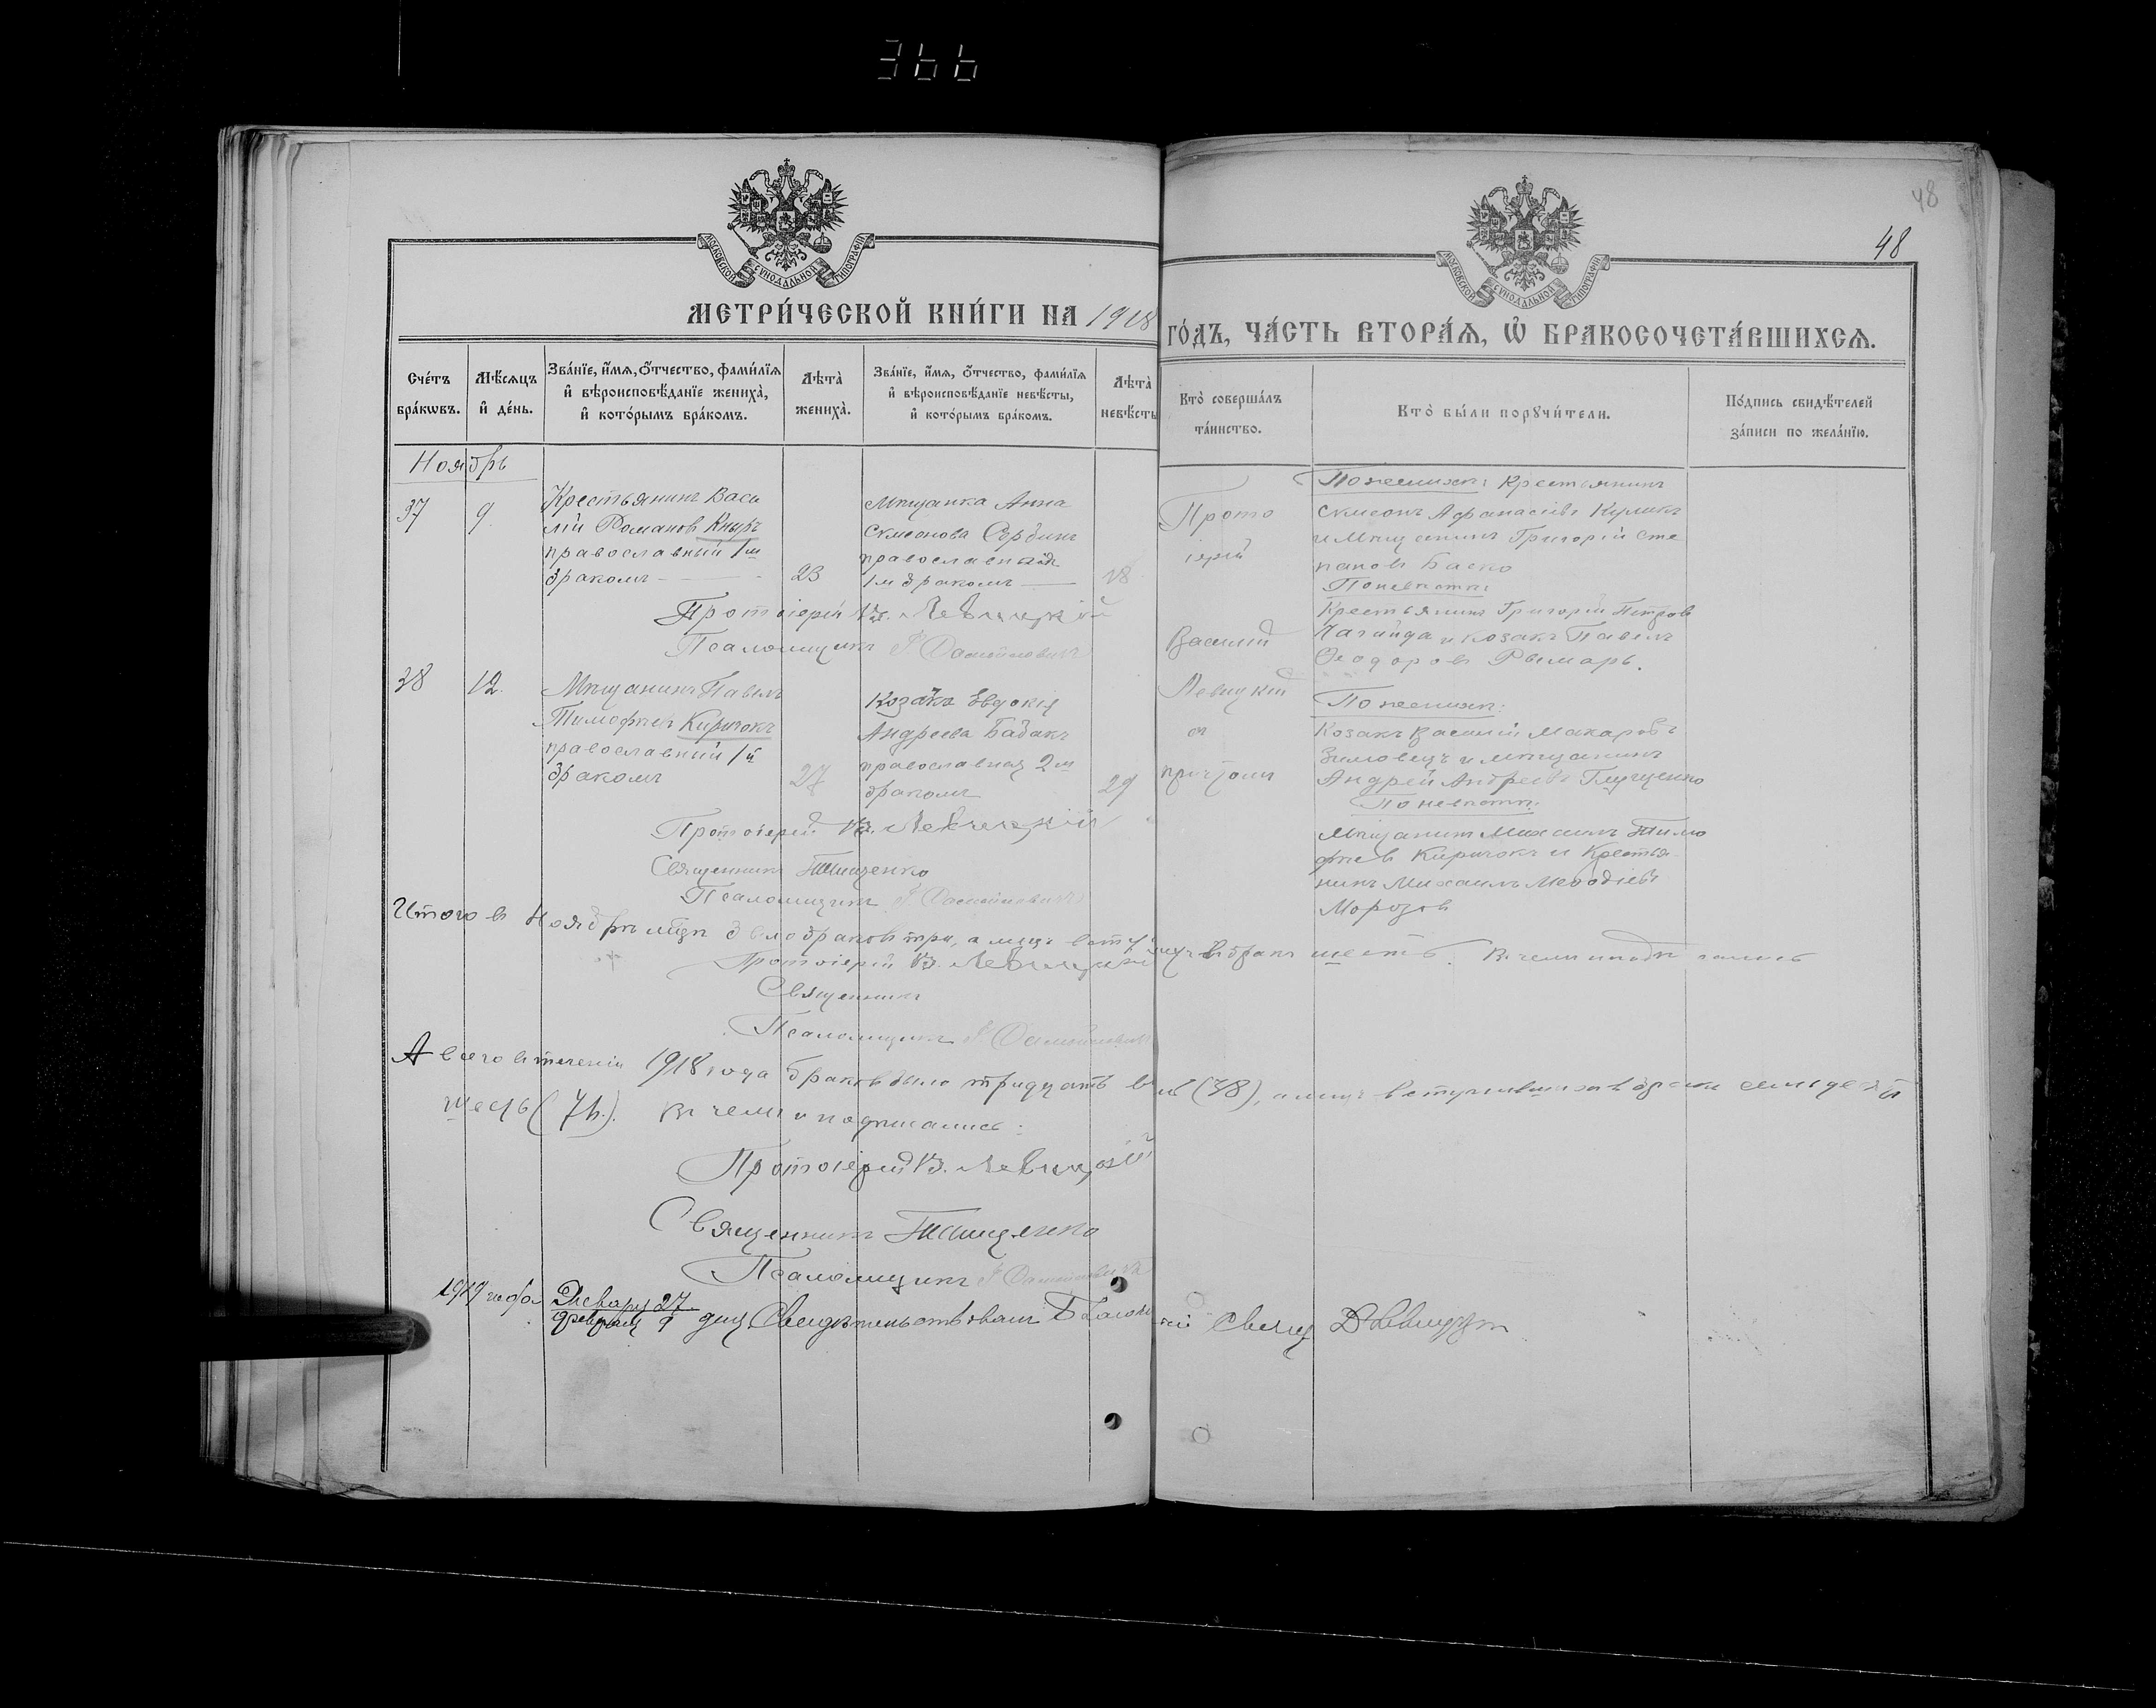 366
48
48
МОСКОВСКОЙ СѴНОДАЛЬНОЙ ТИПОГРАФІИ
МОСКОВСКОЙ СѴНОДАЛЬНОЙ ТИПОГРАФІИ
МЕТРИ́ЧЕСКОЙ КНИ́ГИ НА 1918
ГО́ДЪ, ЧА́СТЬ ВТОРА́Ѧ, Ѡ҆ БРАКОСОЧЕТА́ВШИХСѦ.
Сче́тъ бра́кѡвъ.
Мѣ́сѧцъ и҆ де́нь.
Зва́нїе, и҆́мѧ, ѻ҆́тчество, фами́лїѧ и҆ вѣроисповѣ́данїе жениха̀, и҆ кото́рымъ бра́комъ.
Лѣта̀ жениха̀.
Зва́нїе, и҆́мѧ, ѻ҆́тчество, фами́лїѧ и҆ вѣроисповѣ́данїе невѣ́сты, и҆ кото́рымъ бра́комъ.
Лѣта̀ невѣ́сты
Кто̀ соверша́лъ та́инство.
Кто̀ бы́ли порꙋчи́тели.
По́дпись свидѣ́телей за́писи по жела́нїю.
Ноябрь
37
9
Крестьянинъ Васи
лій Романовъ Кныръ
православный 1м
бракомъ
23
Мѣщанка Анна
Сѵмеонова
православная
1м бракомъ
18
Прото
іерей
Василій
Левицкій
съ
причтомъ
По женихѣ: Крестьянинъ
Сѵмеонъ Афанасіевъ Куликъ
и Мѣщанинъ Григорій Сте
пановъ Баско
По невѣстѣ:
Крестьянинъ Григорій Петровъ
и козакъ Павелъ
Ѳеодоровъ Рымарь.
Протоіерей В. Левицкій
Псаломщикъ
38
12
Мѣщанинъ Павелъ
Тимофѣевъ Киричокъ
православный 1й
бракомъ
27
Козачка Евдокія
Андреева Бабакъ
православная 2м
бракомъ
29
По женихѣ:
Козакъ Василій Макаровъ
Зимовецъ и мѣщанинъ
Андрей Андреевъ Глущенко
По невѣстѣ:
Мѣщанинъ Михаилъ Тимо
фѣевъ Киричокъ и Крестья
нинъ Михаилъ Меѳодіевъ
Морозовъ
Протоіерей В. Левицкій
Священникъ Тищенко
Псаломщикъ
Итого въ Ноябрѣ мцѣ было браковъ три, а лицъ вступ. въ бракъ шесть. Въ чемъ и подписались
Протоіерей В. Левицкій
Священникъ
Псаломщикъ
А всего въ теченіи 1918 года браковъ было тридцать восемь (38), а лицъ вступившихъ въ браки семьдесятъ
шесть (76). Въ чемъ и подписались:
Протоіерей В. Левицкій
Священникъ Тищенко
Псаломщикъ
1919 года Января 27
Февраля 9 дня Свидѣтельствовалъ